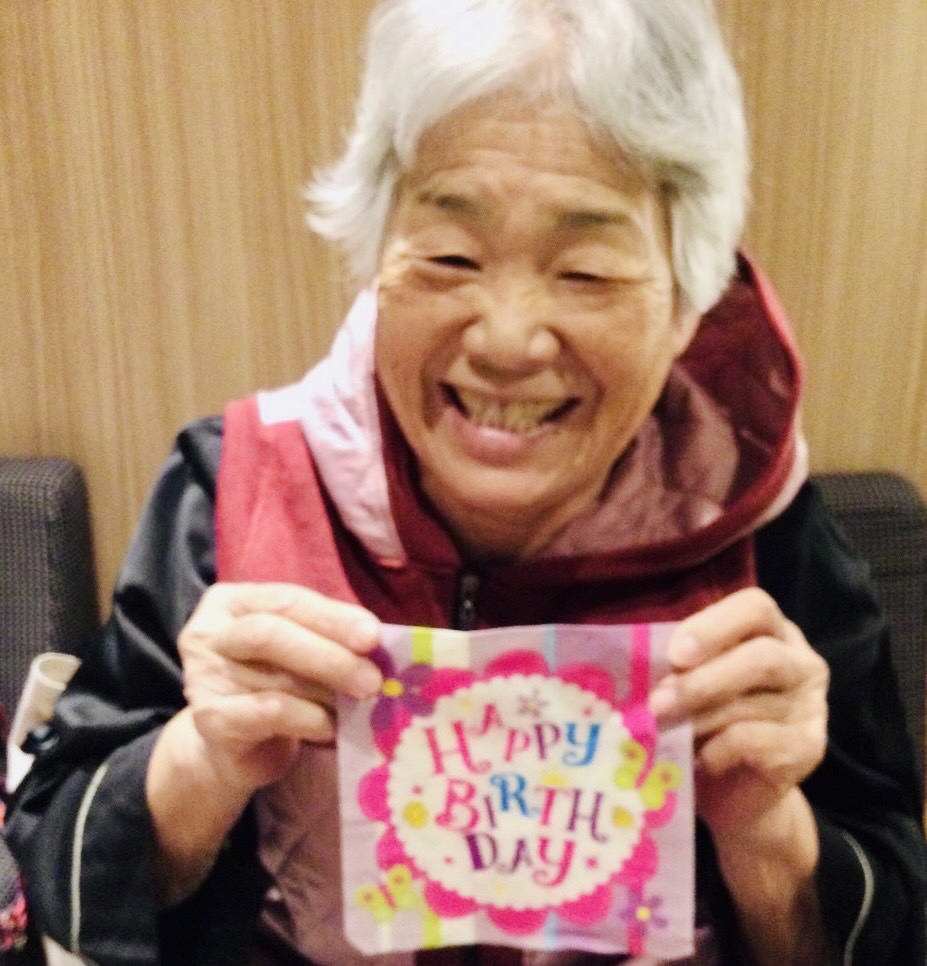 HAPPY
BIRTH
DAY